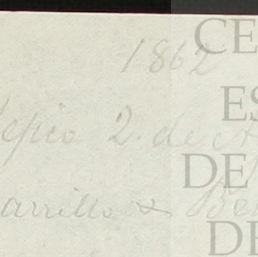 1862
Tepic 2. de A
arrillo & Be
CE
ES
DE
DE